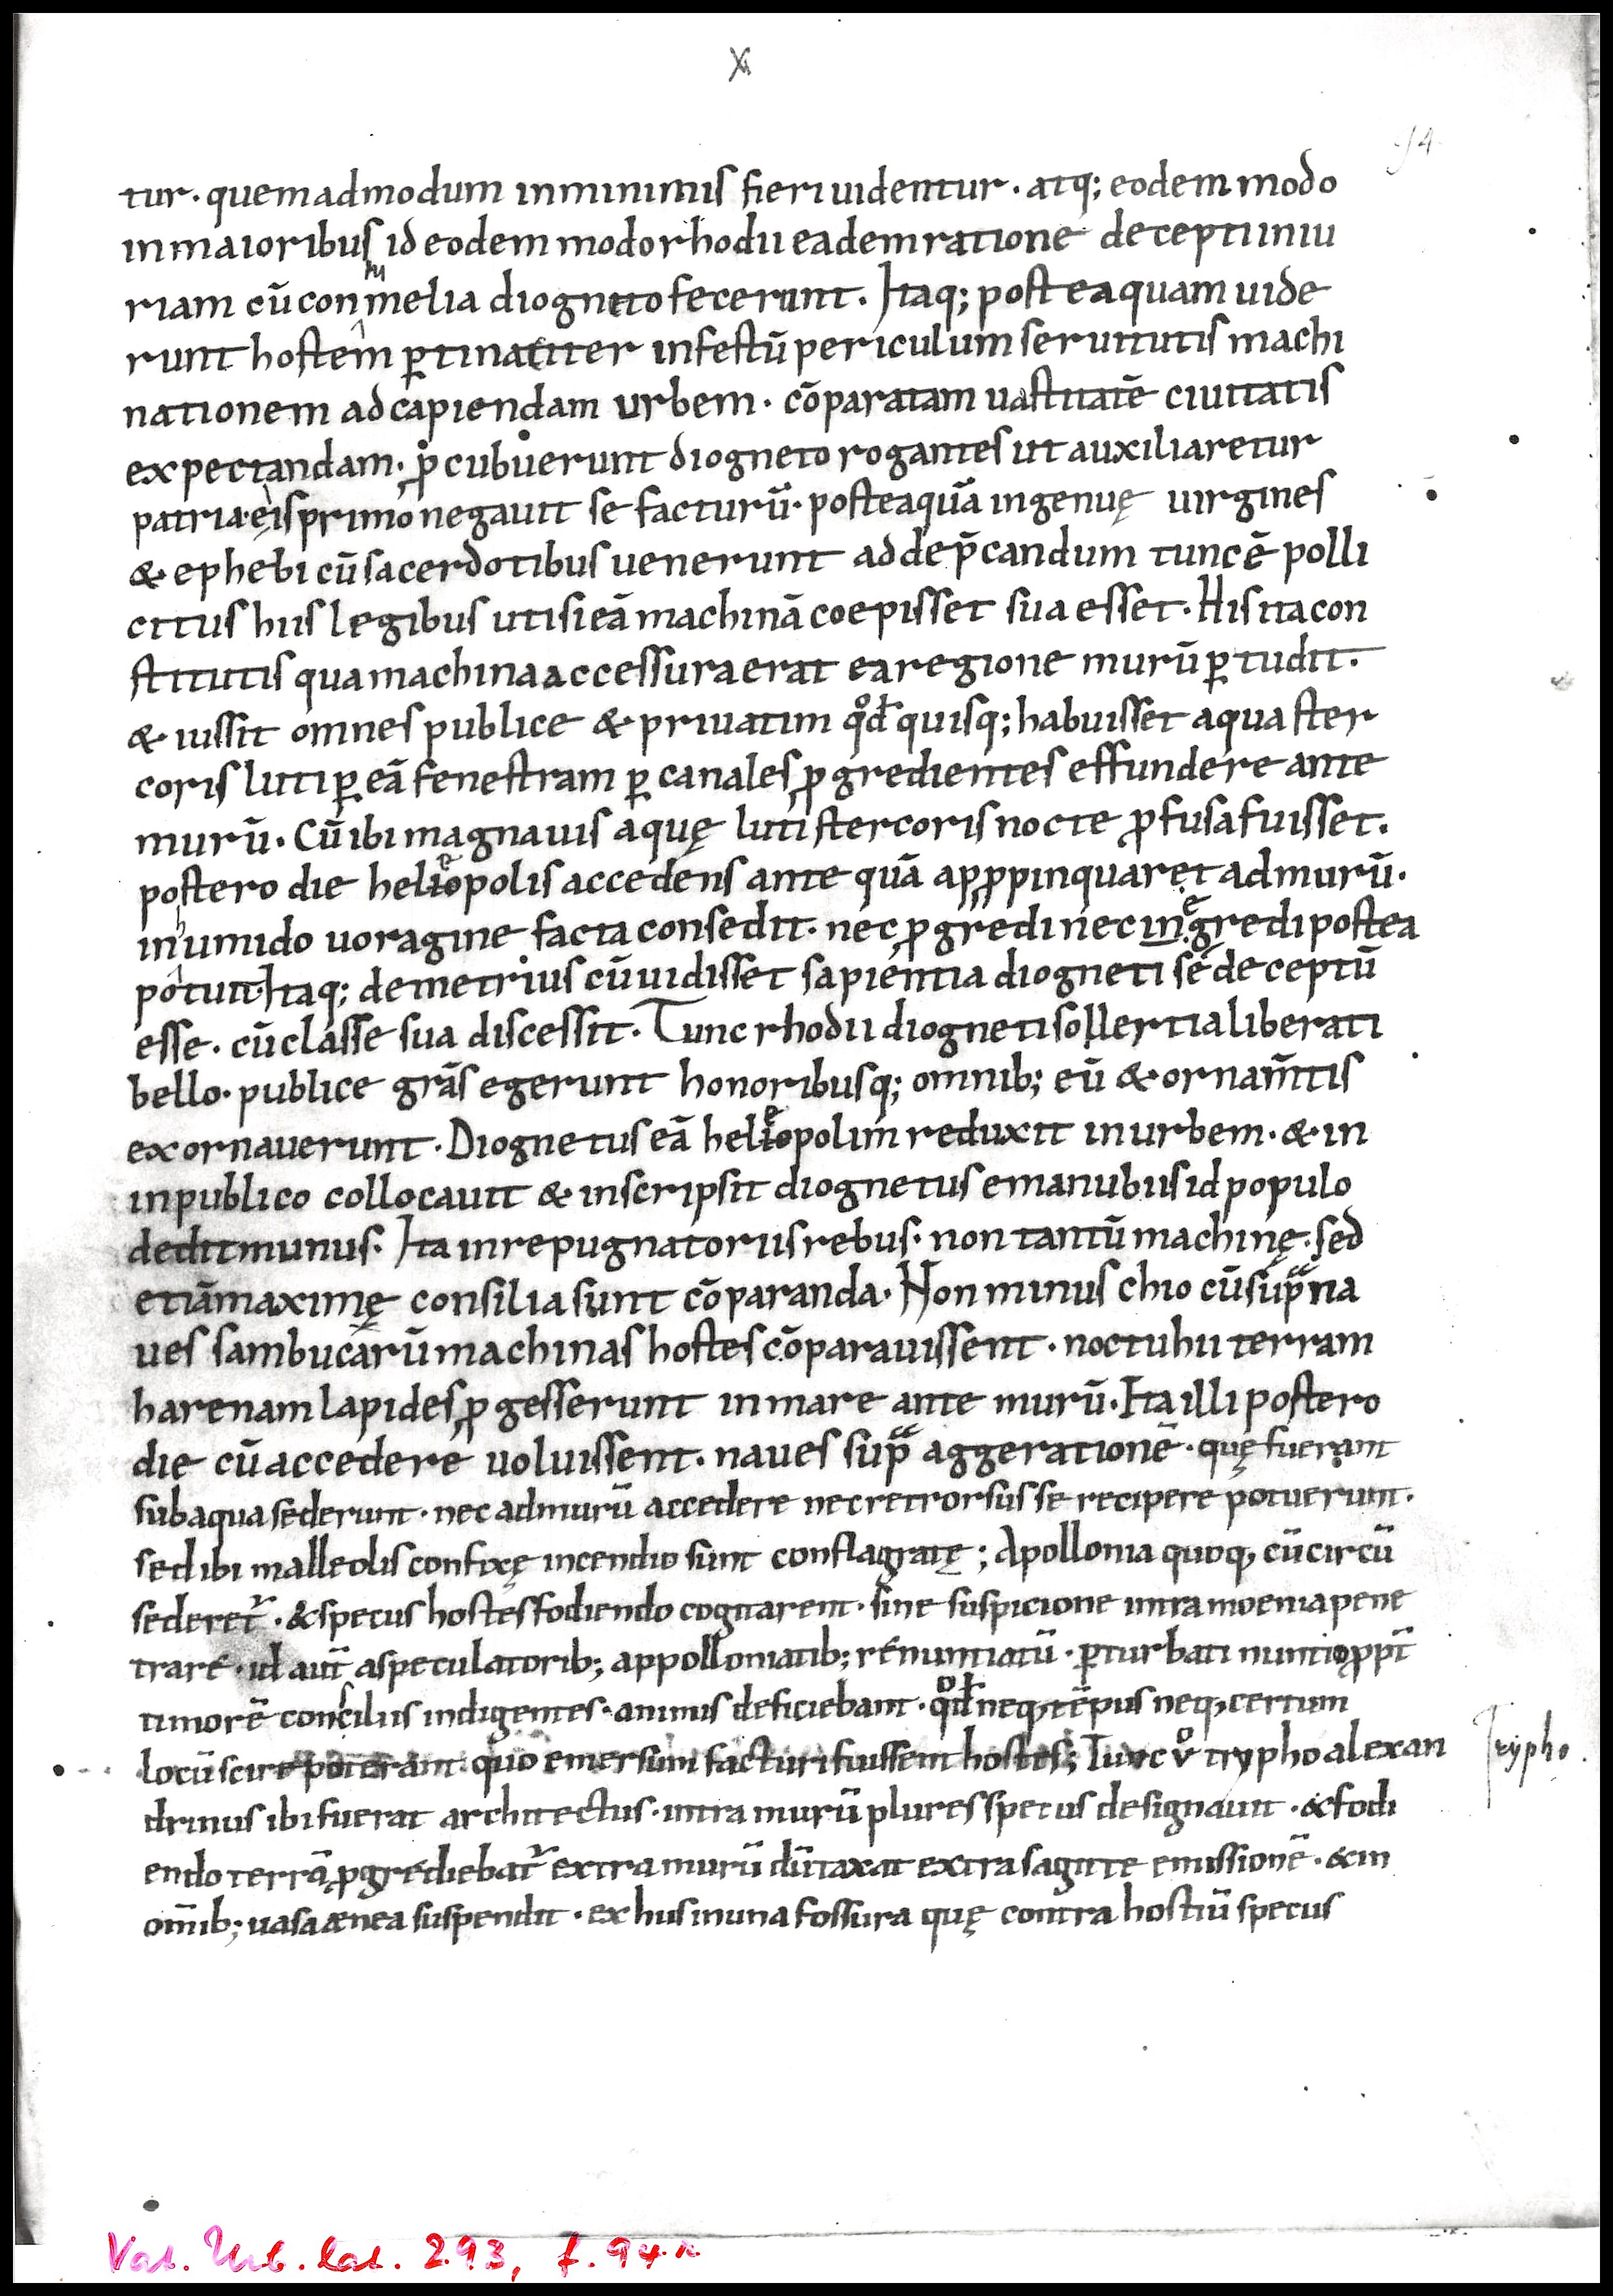 X
94
tur · quemadmodum inminimis fieri uidentur · atq; eodem modo
inmaioribus id eodem modo rhodii eadem ratione decepti iniu
riam cū contumelia diogneto fecerunt. Itaq; posteaquam uide
runt hostem ꝑtinaciter infestū periculum seruitutis machi
nationem ad capiendam urbem · cōparatam uastitatē ciuitatis
expectandam · ꝓcubuerunt diogneto rogantes ut auxiliaretur
patriæ · is primo negauit se facturū · posteaquā ingenuę uirgines
& ephebi cū sacerdotibus uenerunt ad dep̄candum tunc ē polli
citus hiis legibus uti si eā machinā coepisset sua esset · His ita con
stitutis qua machina accessura erat ea regione murū ꝑtudit ·
& iussit omnes publice & priuatim qd quisq; habuisset aqua ster
coris luti ꝑ eā fenestram ꝑ canales ꝓgredientes effundere ante
murū · Cū ibi magna uis aquę luti stercoris nocte ꝓfusa fuisset ·
postero die heliopolis accedens ante quā apꝓpinquaret ad murū ·
in humido uoragine facta consedit · nec ꝓgredi nec ingredi postea
potuit · Itaq; demetrius cū uidisset sapientia diogneti se deceptū
esse · cū classe sua discessit · Tunc rhodii diogneti sollertia liberati
bello · publice grās egerunt honoribusq; omnib; eū & ornam̄tis
exornauerunt · Diognetus eā heliopolim reduxit in urbem · & in
in publico collocauit & inscripsit diognetus e manubiis id populo
dedit munus · Ita in repugnatoriis rebus · non tantū machinę · sed
etiā maximę consilia sunt cōparanda · Non minus chio cū supra na
ues sambucarū machinas hostes cōparauissent · noctu hii terram
harenam lapides ꝓgesserunt in mare ante murū · Ita illi postero
die cū accedere uoluissent · naues supra aggerationē · quę fuerant
sub aqua sederunt · nec ad murū accedere nec retrorsus se recipere potuerunt ·
sed ibi malleolis confixę incendio sunt conflagratę ; Apollonia quoq, cū circū
sederet̄ · & specus hostes fodiendo cogitarent · sine suspicione intra moenia pene
trare · id aut̄ a speculatorib; appolloniatib; renuntiatū · ꝑturbati nuntio ꝓpt̄
timorē consiliis indigentes · animis deficiebant · qd neq, tēpus neq, certum
locū scire poterant · quo emersum facturi fuissent hostes ; Tunc v° trypho alexan
Trypho.
drinus ibi fuerat architectus · intra murū plures specus designauit · & fodi
endo terrā ꝓgrediebat̄ extra murū dūtaxat extra sagitte emissionē · & in
om̄ib; uasa ænea suspendit · ex hiis in una fossura quę contra hostiū specus
Vat. Urb. lat. 293, f. 94r